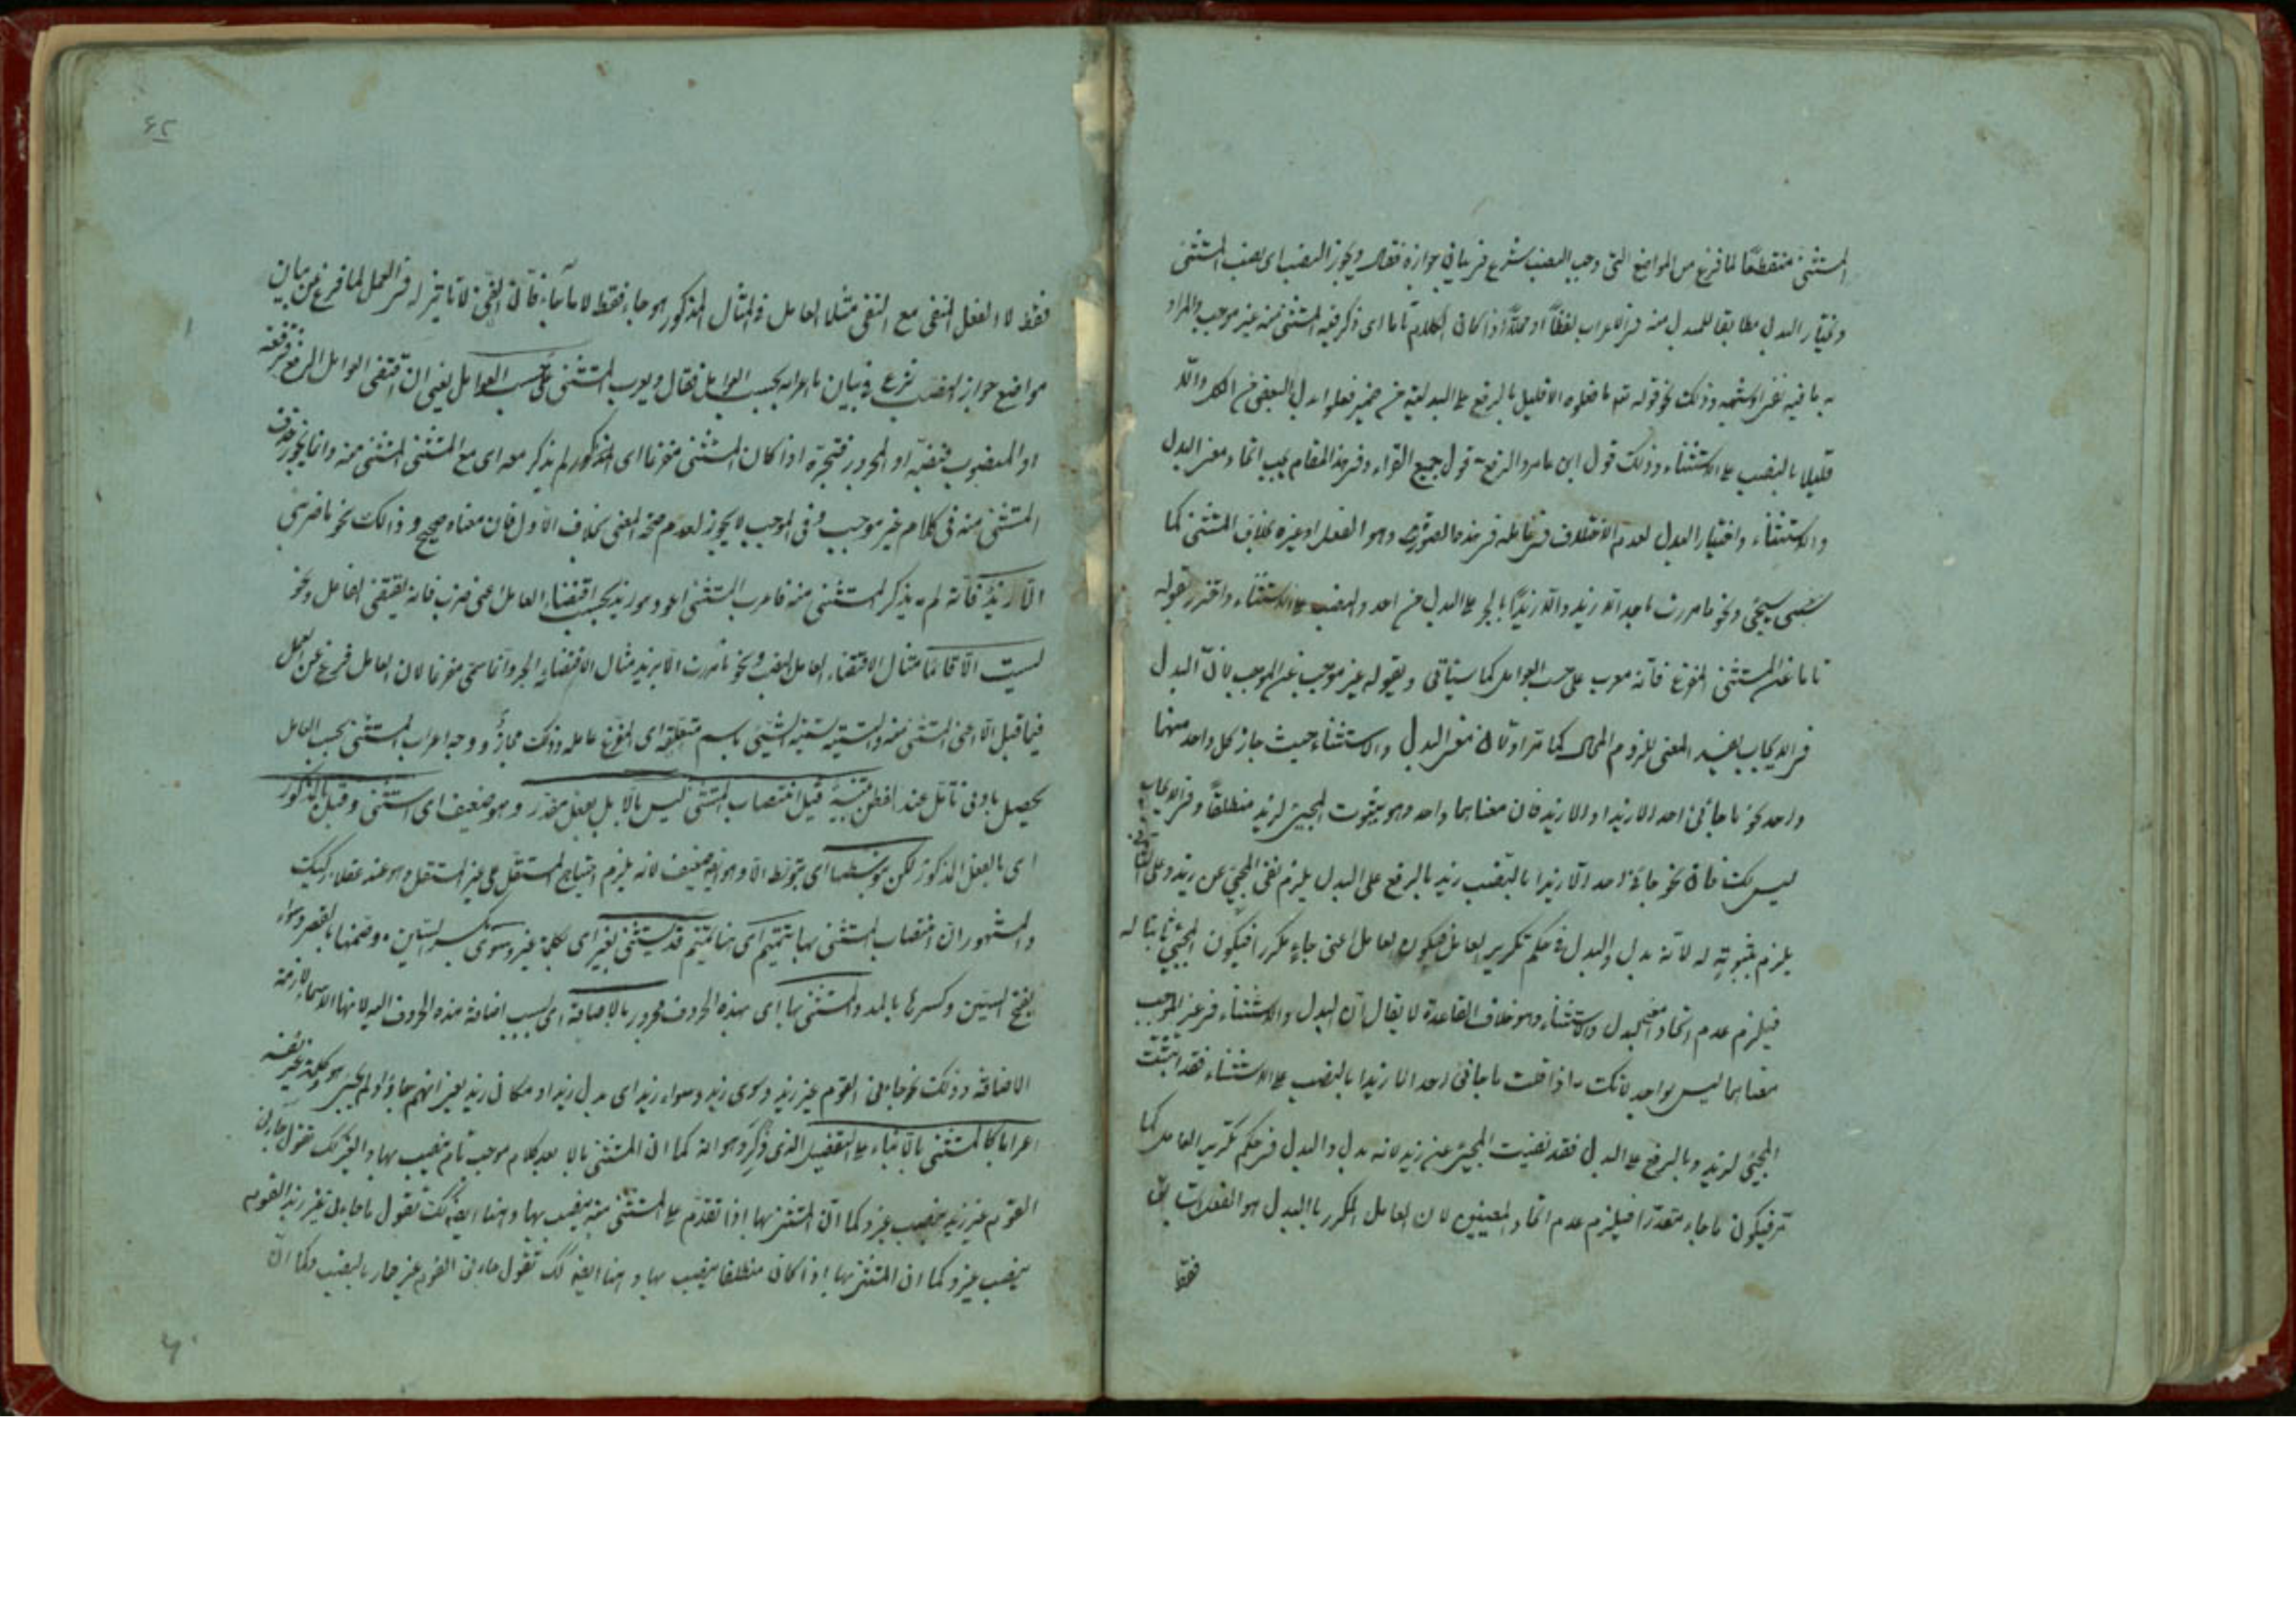 المستثنى منقطعا لما فرغ من المواضع التى وجب النصب شرع فى بيان جوازه فقال ويجوز النصب اى نصب المستثنى
ويختار البدل مطابقا للمبدل منه فى الاعراب لفظا او محلا اذا كان الكلام تاما اى ذكر فيه المستثنى منه غير موجب والمراد
به ما فيه نفى او شبهه وذلك نحو قوله تع ما فعلوه الا قليل بالرفع على البدلية من ضمير فعلوا بدل البعض من الكل والا
قليلا بالنصب على الاستثناء وذلك قول ابن عامر والرفع قول جميع القراء وفى هذا المقام يجب اتحاد معنى البدل
والاستثناء واختيار البدل لعدم الاختلاف فى عامله فى هذه الصورة وهو الفعل او غيره بخلاف المستثنى كما
سيجئ ونحو ما مررت باحد الا زيد والا زيدا بالجر على البدل من احد والنصب على الاستثناء واحترز بقوله
تاما عن المستثنى المفرغ فانه معرب على حسب العوامل كما سيأتى وبقوله غير موجب عن الموجب لان البدل
فى الايجاب يفسد المعنى للزوم المحال كما مر اولا ان معنى البدل والاستثناء حيث جاز كل واحد منهما
واحد نحو ما جائنى احد الا زيدا والا زيد فان معناهما واحد وهو ثبوت المجيئ لزيد مطلقا وفى الايجاب
ليس كك فان نحو جائنى احد الا زيدا بالنصب زيد بالرفع على البدل يلزم نفى المجيئ عن زيد وعلى
يلزم ثبوته له لانه بدل والبدل فى حكم تكرير العامل فيكون العامل اعنى جاء مكررا فيكون المجيئ ثابتا له
فيلزم عدم اتحاد معنى البدل والاستثناء وهو خلاف القاعدة لا يقال ان البدل والاستثناء فى غير الموجب
معناهما ليس بواحد لانك اذا قلت ما جائنى احد الا زيدا بالنصب على الاستثناء فقد اثبت
المجيئ لزيد وبالرفع على البدل فقد نفيت المجيئ عن زيد لانه بدل والبدل فى حكم تكرير العامل كما
مر فيكون ما جاء مقدرا فيلزم عدم اتحاد المعنيين لان العامل المكرر بالبدل هو الفعل
فقط
٦٢
فقط لا الفعل المنفى مع النفى مثلا العامل فى المثال المذكور هو جاء فقط لا ما جاء فان النفى لا تاثير له فى العمل لما فرغ من بيان
مواضع جواز النصب شرع فى بيان ما اعرابه بحسب العوامل فقال ويعرب المستثنى على حسب العوامل يعنى ان اقتضى العوامل الرفع فرفعه
او المنصوب فنصبه او المجرور فتجره اذا كان المستثنى مفرغا اى المذكور لم يذكر معه اى مع المستثنى المستثنى منه وانما يجوز حذف
المستثنى منه فى كلام غير موجب وفى الموجب لا يجوز لعدم صحة المعنى بخلاف الاول فان معناه صحيح وذالك نحو ما ضربنى
الا زيد فانه لم يذكر المستثنى منه فاعرب المستثنى وهو زيد بحسب اقتضاء العامل اعنى ضرب فانه يقتضى الفاعل ونحو
لست الا قائما مثال الاقتضاء العامل النصب ونحو ما مررت الا بزيد مثال الاقتضائه الجر وانما سمى مفرغا لان العامل فرغ عن العمل
فيما قبل الا اعنى المستثنى منه والتسمية تسمية الشئ باسم متعلقه اى المفرغ عامله وذلك مجاز ووجه اعراب المستثنى بحسب العامل
يحصل بادنى تامل عند الفطن تنبيه قيل انتصاب المستثنى ليس بالا بل بفعل مقدر وهو ضعيف اى استثنى وقيل بالمذكور
اى بالفعل المذكور لكن بتوسطها اى بتوسط الا وهو ايضا ضعيف لانه يلزم احتياج المستقل الى غير المستقل وهو عند عقلا ركيك
والمشهور ان انتصاب المستثنى بها تتميم اى هنا تتميم قد يستثنى بغير اى بكلمة غير وسوى بكسر السين وضمها بالقصر وسواء
بفتح السين وكسرها بالمد والمستثنى بها اى بهذه الحروف مجرور بالاضافة اى بسبب اضافة هذه الحروف اليه لانها الاسماء لازمة
الاضافة وذلك نحو جاءنى القوم غير زيد وسوى زيد وسواء زيد اى بدل زيد او مكان زيد يعنى انهم جاؤا ولم يجئ هو وكلمة غير نفسه
اعرابها كالمستثنى بالا بناء على التفصيل الذى ذكر وهو انه كما ان المستثنى بالا بعد كلام موجب تام ينصب بها والغير كك تقول جاءنى
القوم غير زيد بنصب غير وكما ان المستثنى بها اذا تقدم على المستثنى منه ينصب بها وهنا ايضا كك تقول ما جاءنى غير زيد القوم
بنصب غير وكما ان المستثنى بها اذا كان منقطعا ينصب بها وهنا ايضا كك تقول جاءنى القوم غير حمار بالنصب وكما ان